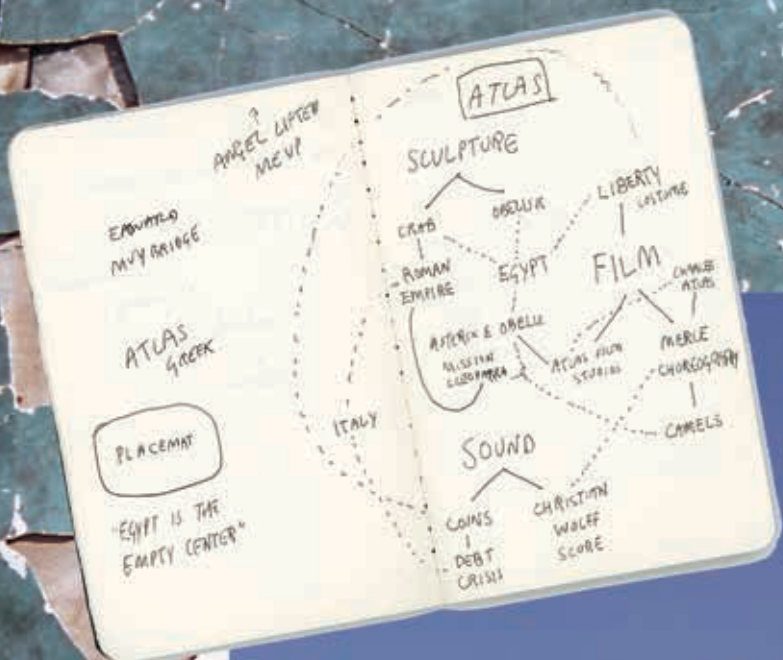 ANGEL LIFTED
ME UP
EADWARD
MUYBRIDGE
ATLAS
GREEK
PLACEMAT
"EGYPT IS THE
EMPTY CENTER"
ITALY
ATLAS
SCULPTURE
CRAB
OBELISK
ROMAN
EMPIRE
EGYPT
LIBERTY
COSTUME
FILM
CHARLES
ATLAS
ASTERIX & OBELIX
MISSION
CLEOPATRA
ATLAS FILM
STUDIOS
MERCE
CHOREOGRAPHY
CAMELS
SOUND
COINS
DEBT
CRISIS
CHRISTIAN
WOLFF
SCORE